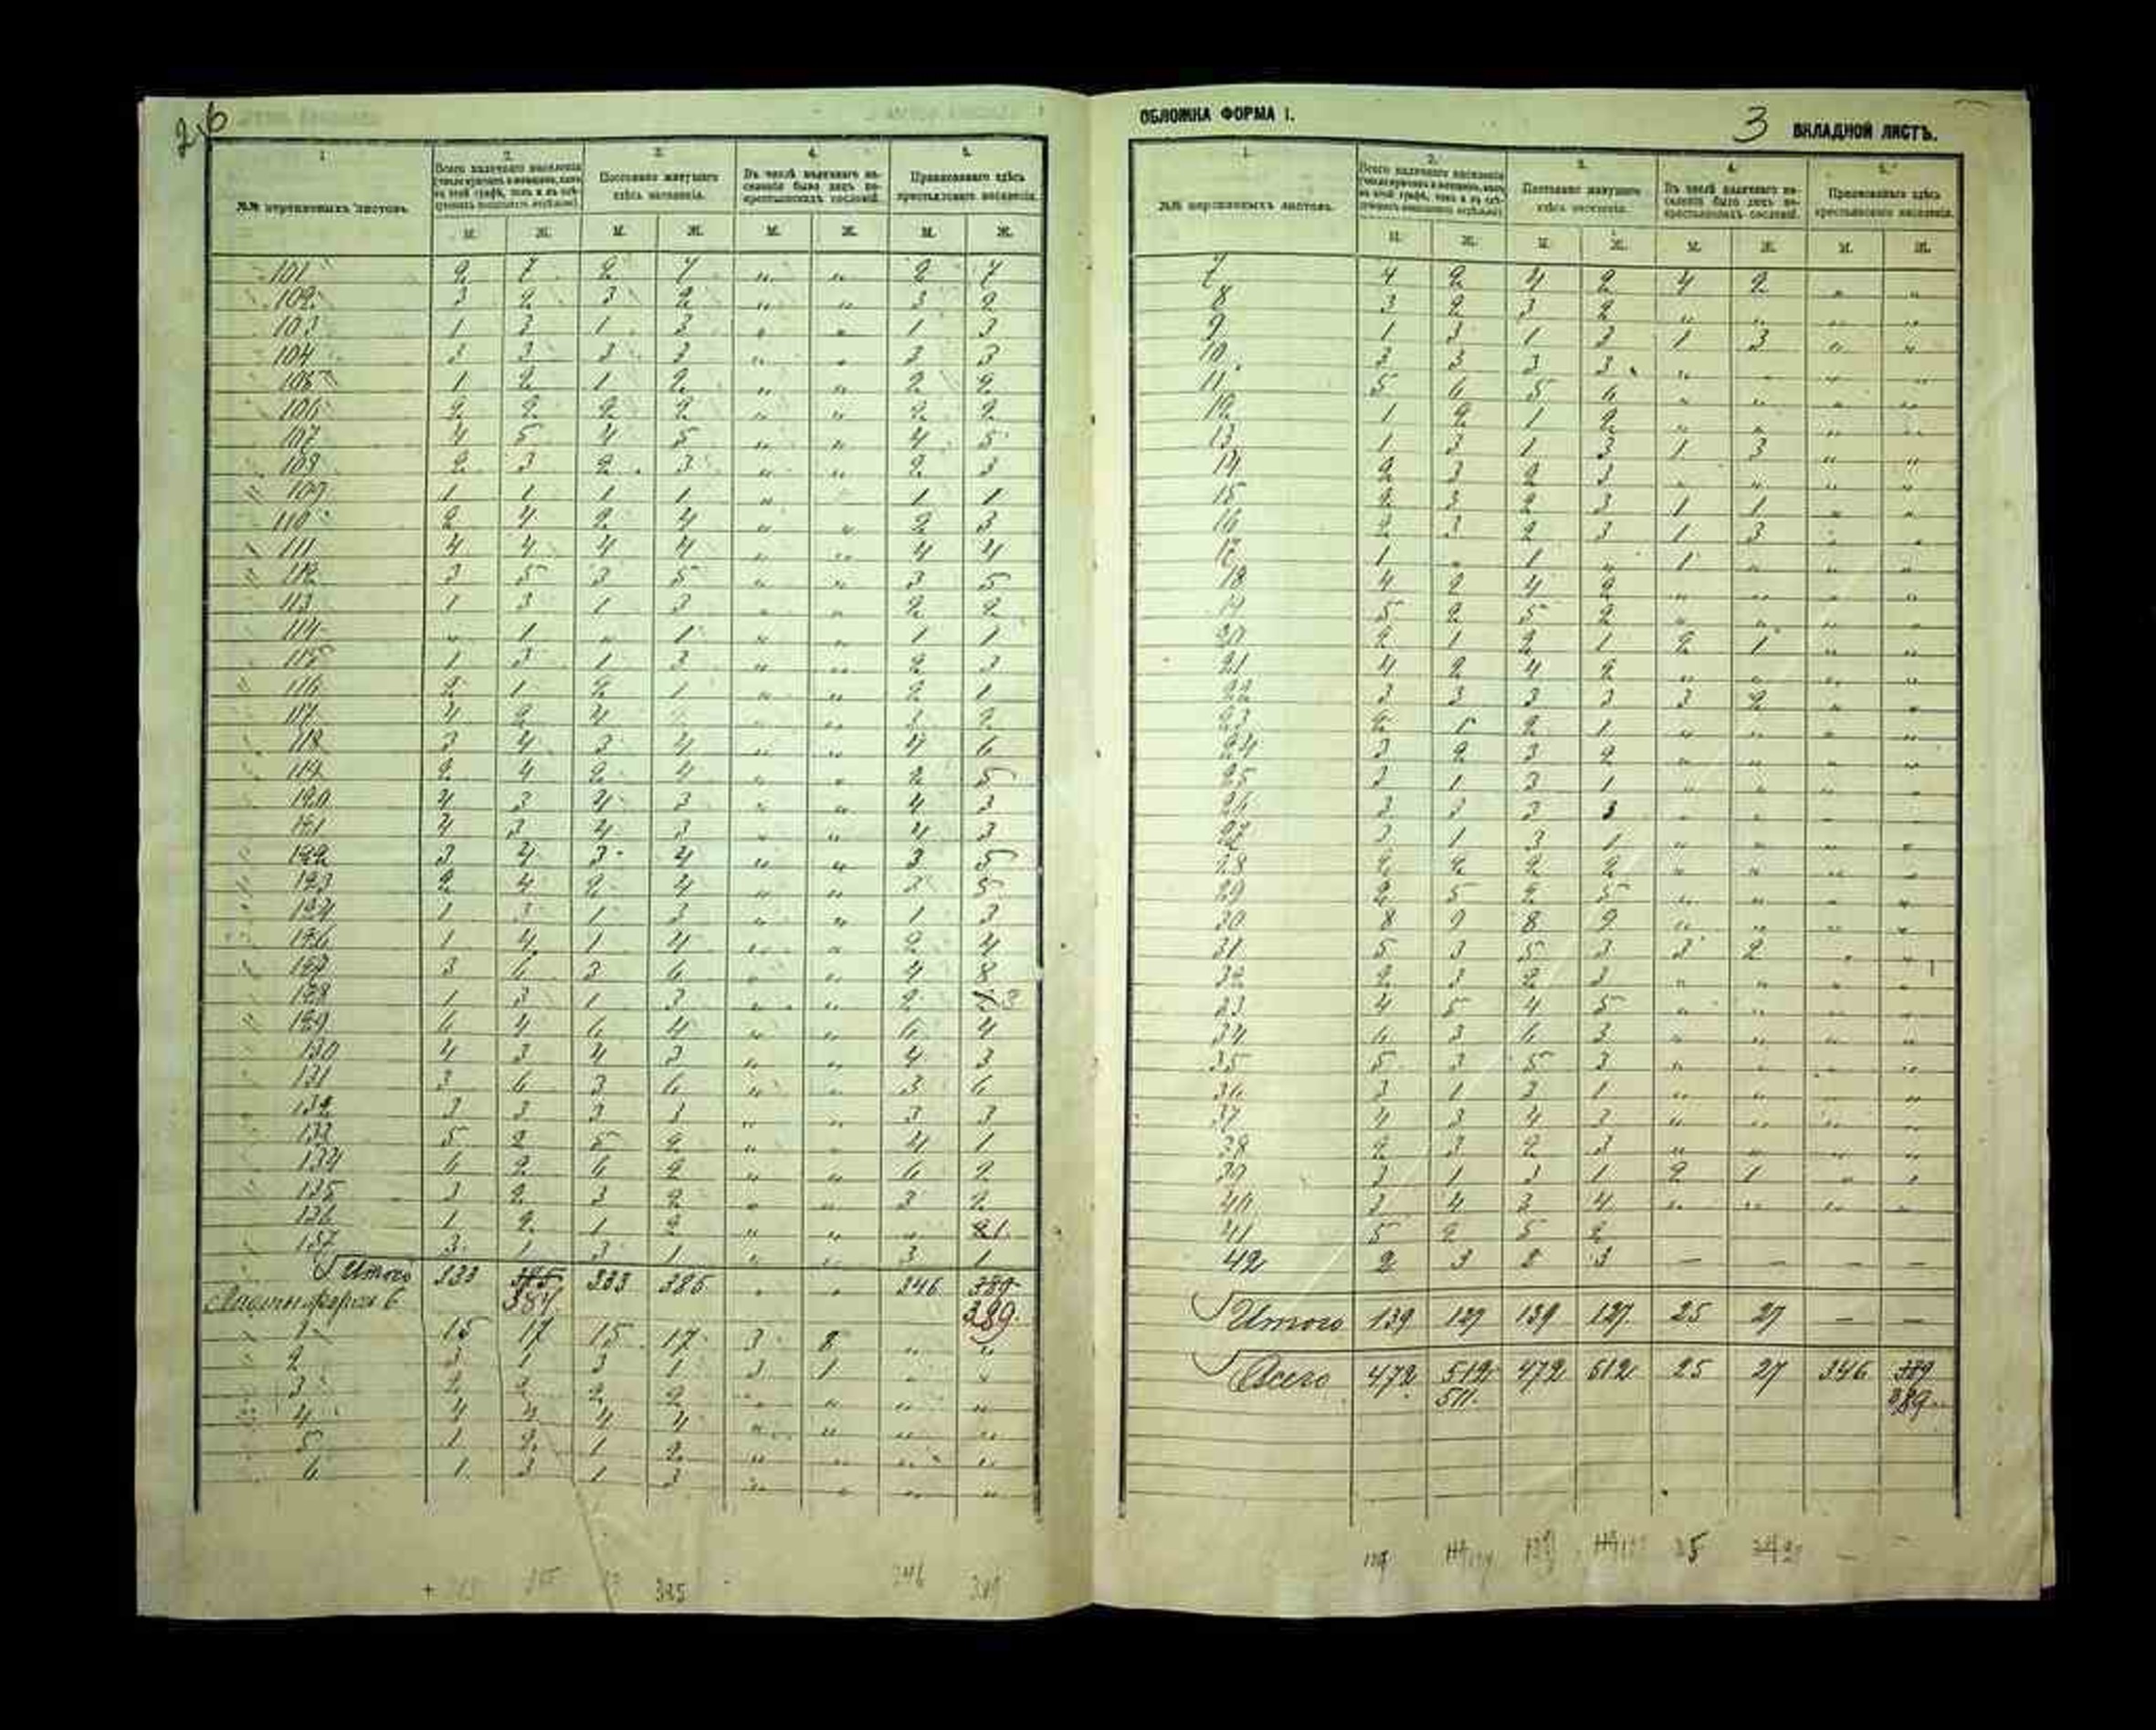 26
1
2.
3.
4.
5.
Всего наличнаго населенія
Постоянно живущаго здѣсь населенія.
Въ числѣ наличнаго населенія было лицъ некрестьянскихъ сословій.
Приписаннаго здѣсь крестьянскаго населенія.
№№ переписныхъ листовъ.
М. Ж. М. Ж. М. Ж. М. Ж.
101 2 7 2 7 „ „ 2 7
102 3 2 3 2 „ „ 3 2
103 1 3 1 3 „ „ 1 3
104 3 3 3 3 „ „ 3 3
105 1 2 1 2 „ „ 2 2
106 2 2 2 2 „ „ 2 2
107 4 5 4 5 „ „ 4 5
108 2 3 2 3 „ „ 2 3
109 1 1 1 1 „ 1 1
110 2 4 2 4 „ „ 2 3
111 4 4 4 4 „ „ 4 4
112 3 5 3 5 „ „ 3 5
113 1 3 1 3 „ „ 2 2
114 „ 1 „ 1 „ „ 1 1
115 1 3 1 3 „ „ 2 3
116 2 1 2 1 „ „ 2 1
117 4 2 4 „ „ 2
118 3 4 3 4 „ „ 4 6
119 2 4 2 4 „ „ 2 5
120 4 3 4 3 „ „ 4 3
121 4 3 4 3 „ „ 4 3
122 3 4 3 4 „ „ 3 5
123 2 4 2 4 „ „ 3 5
124 1 3 1 3 „ „ 1 3
126 1 4 1 4 „ „ 2 4
127 3 6 3 6 „ „ 4 8
128 1 3 1 3 „ „ 2 3
129 6 4 6 4 „ „ 6 4
130 4 3 4 3 „ „ 4 3
131 3 6 3 6 „ „ 3 6
132 3 3 3 3 „ „ 3 3
133 5 2 5 2 „ „ 4 1
134 6 2 6 2 „ „ 6 2
135 3 2 3 2 „ „ 3 2
136 1 2 1 2 „ „ „ 1
137 3 1 3 1 „ „ 3 1
Итого 333 385 333 385 „ „ 346 389
384 389.
1 15 17 15 17 3 8 „ „
2 3 1 3 1 3 1 „ „
3 2 2 2 2 „ „ „ „
4 4 4 4 4 „ „ „ „
5 1 2 1 2 „ „ „ „
6 1 3 1 3 „ „ „ „
385 346 389
ОБЛОЖКА ФОРМА I.
3 ВКЛАДНОЙ ЛИСТЪ.
1.
2.
3.
4.
5.
Всего наличнаго населенія
Постоянно живущаго здѣсь населенія.
Въ числѣ наличнаго населенія было лицъ некрестьянскихъ сословій.
Приписаннаго здѣсь крестьянскаго населенія.
№№ переписныхъ листовъ.
М. Ж. М. Ж. М. Ж. М. Ж.
7 4 2 4 2 4 2 „ „
8 3 2 3 2 „ „ „ „
9 1 3 1 3 1 3 „ „
10 3 3 3 3 „ „ „ „
11 5 6 5 6 „ „ „ „
12 1 2 1 2 „ „ „ „
13 1 3 1 3 1 3 „ „
14 2 3 2 3 „ „ „ „
15 2 3 2 3 1 1 „ „
16 2 3 2 3 1 3 „ „
17 1 „ 1 „ 1 „ „ „
18 4 2 4 2 „ „ „ „
19 5 2 5 2 „ „ „ „
20 2 1 2 1 2 1 „ „
21 4 2 4 2 „ „ „ „
22 3 3 3 3 3 2 „ „
23 2 1 2 1 „ „ „ „
24 3 2 3 2 „ „ „ „
25 3 1 3 1 „ „ „ „
26 3 3 3 3 „ „ „ „
27 3 1 3 1 „ „ „ „
28 2 2 2 2 „ „ „ „
29 2 5 2 5 „ „ „ „
30 8 9 8 9 „ „ „ „
31 5 3 5 3 3 2 „ „
32 2 3 2 3 „ „ „ „
33 4 5 4 5 „ „ „ „
34 6 3 6 3 „ „ „ „
35 5 3 5 3 „ „ „ „
36 3 1 3 1 „ „ „ „
37 4 3 4 3 „ „ „ „
38 2 3 2 3 „ „ „ „
39 3 1 3 1 2 1 „ „
40 3 4 3 4 „ „ „ „
41 5 2 5 2
42 2 3 2 3 — — — —
Итого 139 127 139 127. 25 27 — —
Всего 472 512 472 512 25 27 346 389
511. 389.
25